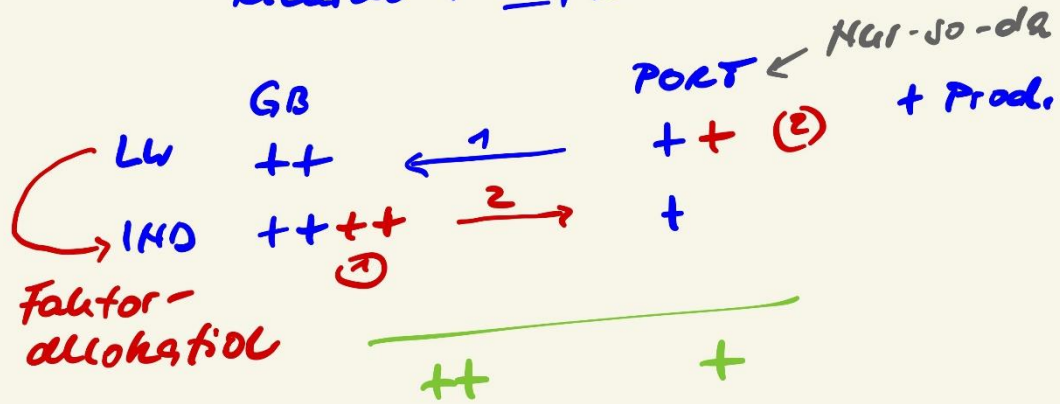 Nur-so-da
GB PORT + Prod.
LW ++ 1 ++ ②
IND ++++ 2 +
①
Faktor-
allokation
++ +